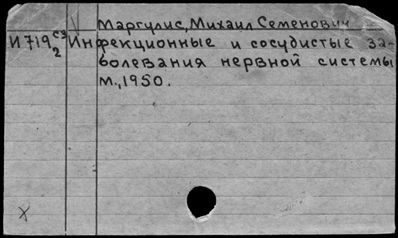 Маргулис, Михаил Семенович
И719 с3 2 Инфекционные и сосудистые за-
болевания нервной системы
М., 1950.
X